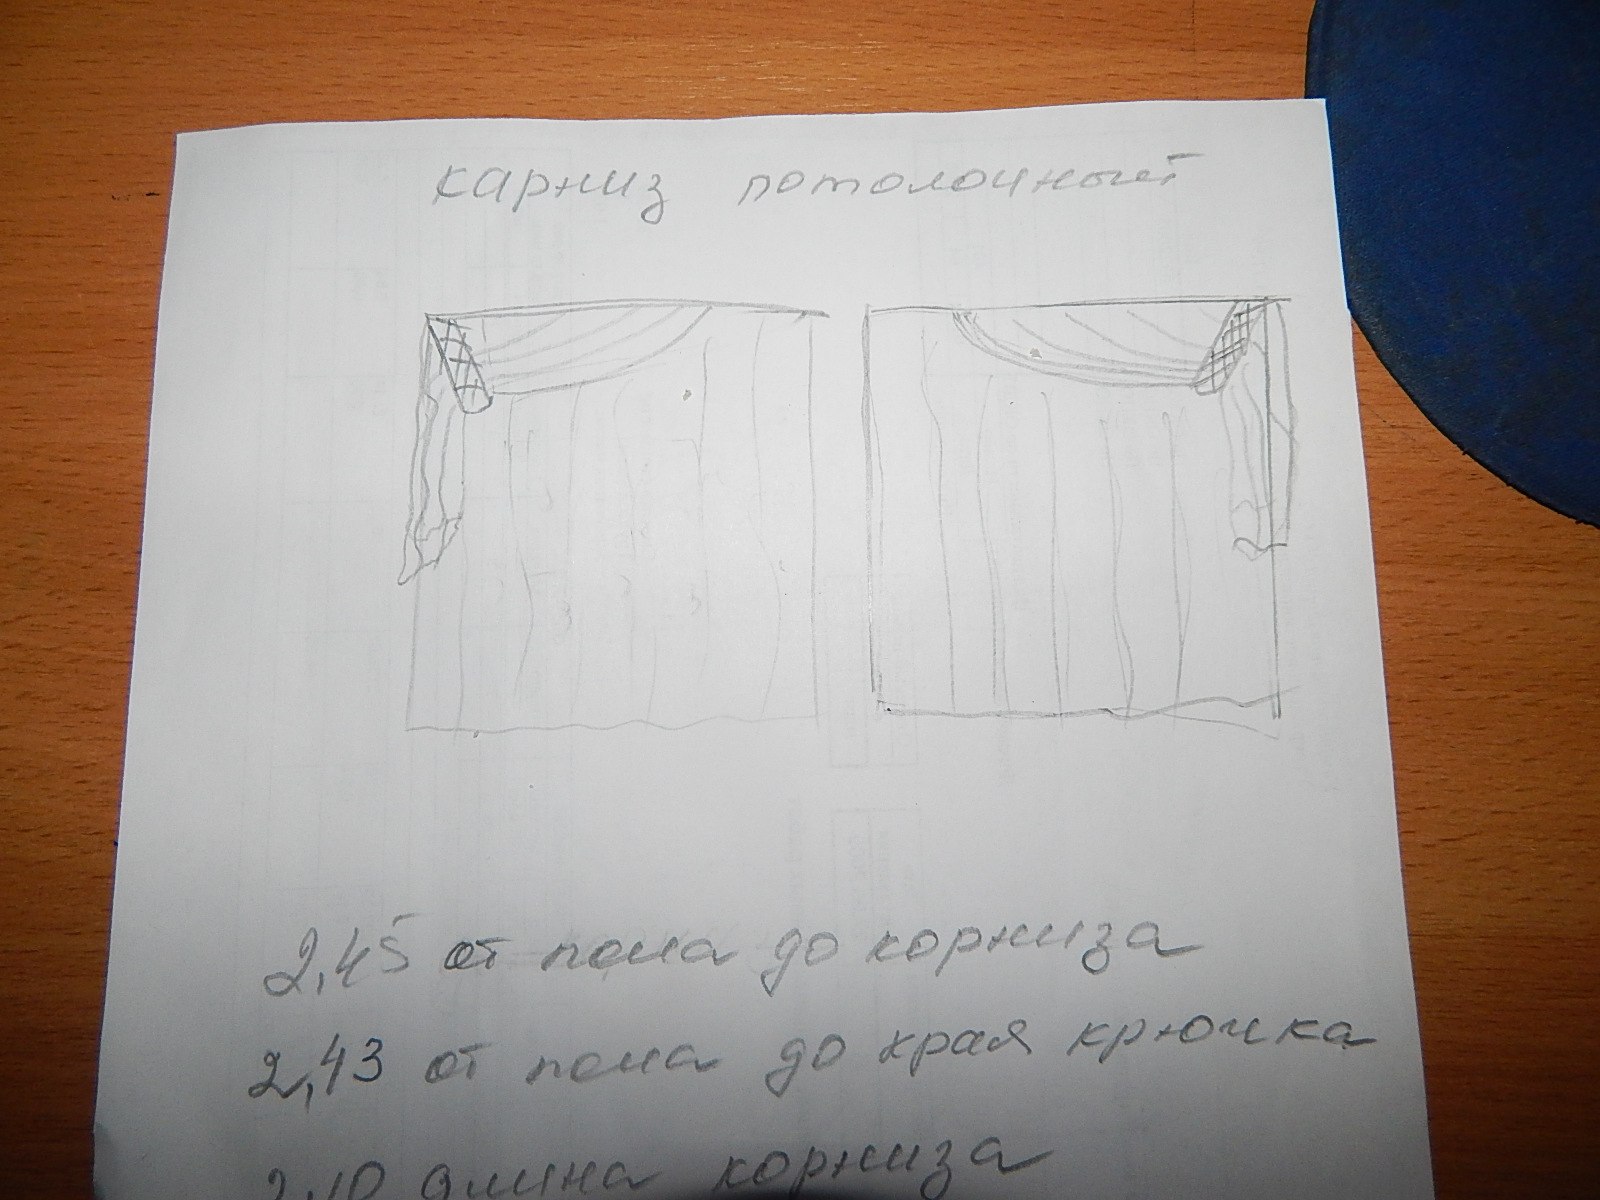 карниз потолочный
2,45 от пола до корниза
2,43 от пола до края крючка
2,10 длина корниза